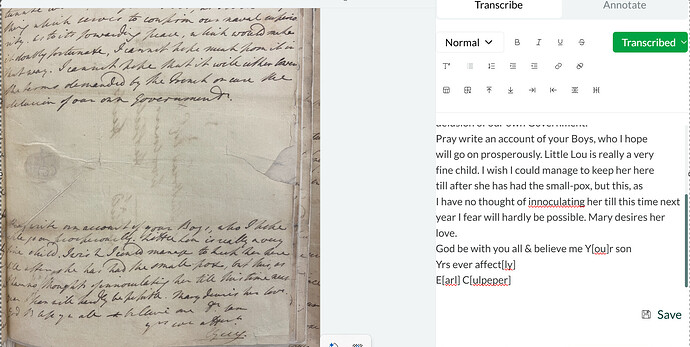 thing which serves to confirm our naval superio
rity, & to its forwarding peace, which would make
it doubly fortunate, I cannot hope much from it in
that way. I cannot hope that it will either lower
the terms demanded by the French or cure the
delusion of our own Government.
write an account of your Boys, who I hope
go on prosperously. Little Lou is really a very
child. I wish I could manage to keep her here
after she has had the small pox, but this as
no thought of innoculating her till this time next
I fear will hardly be possible. Mary desires her love.
be with you all & believe me
yrs ever
Transcribe
Annotate
Normal
B I U S
Transcribed
delusion of our own Government.
Pray write an account of your Boys, who I hope
will go on prosperously. Little Lou is really a very
fine child. I wish I could manage to keep her here
till after she has had the small-pox, but this, as
I have no thought of innoculating her till this time next
year I fear will hardly be possible. Mary desires her
love.
God be with you all & believe me Y[ou]r son
Yrs ever affect[ly]
E[arl] C[ulpeper]
Save